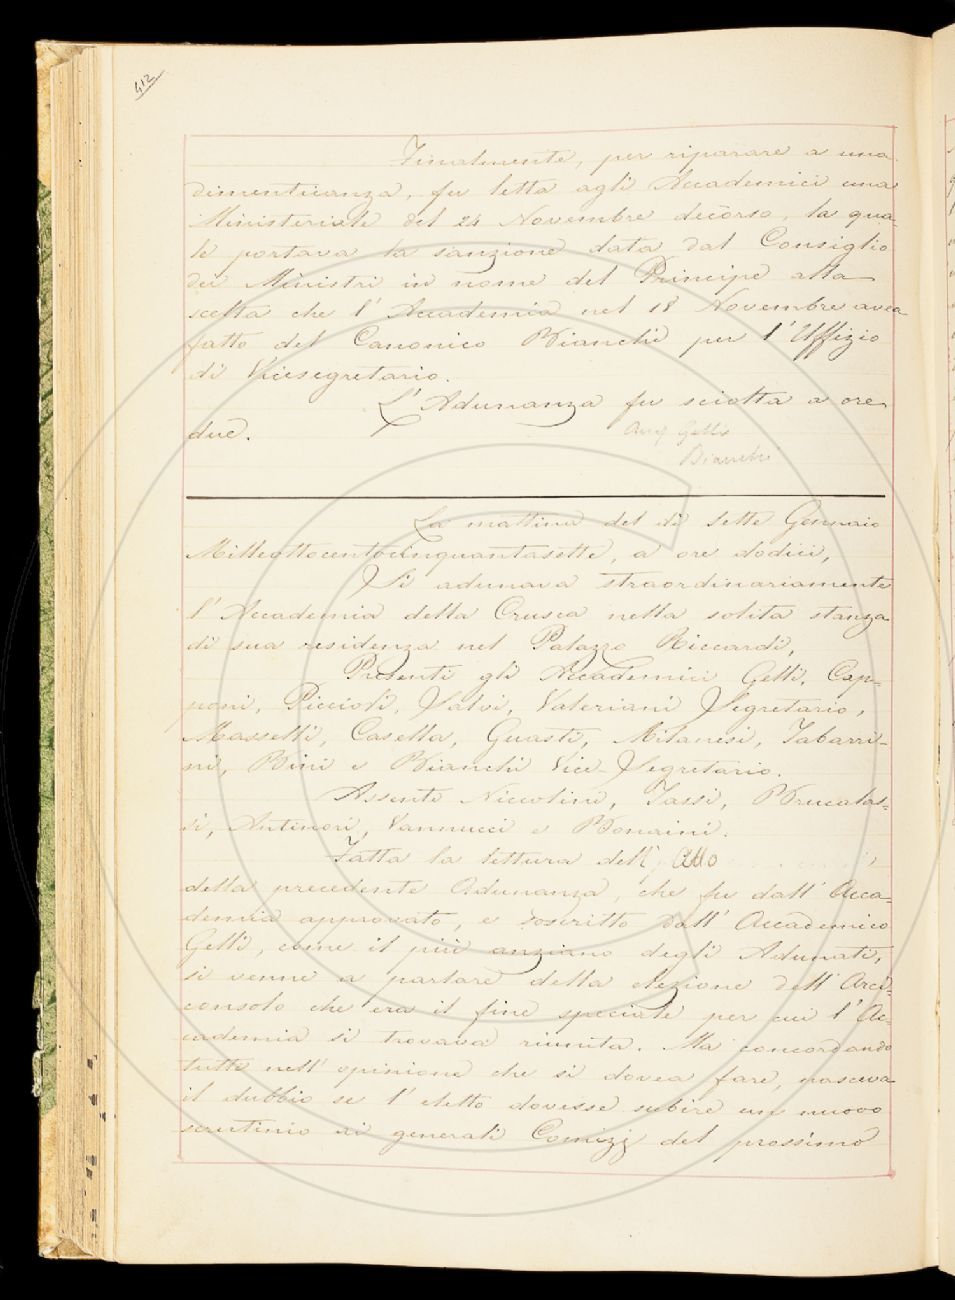 412
Finalmente, per riparare a una
dimenticanza, fu letta agli Accademici una
Ministeriale del 24 Novembre decorso, la qua-
le portava la sanzione data dal Consiglio
dei Ministri in nome del Principe alla
scelta che l'Accademia nel 18 Novembre avea
fatto del Canonico Bianchi per l'Uffizio
di Vicesegretario.
L'Adunanza fu sciolta a ore
due.
Aug Gelli
Bianchi
La mattina del dì sette Gennaio
Milleottocentocinquantasette, a ore dodici,
Si adunava straordinariamente
l'Accademia della Crusca nella solita stanza
di sua residenza nel Palazzo Riccardi,
Presenti gli Accademici Gelli, Cap-
poni, Piccioli, Salvi, Valeriani Segretario,
Masselli, Casella, Guasti, Milanesi, Tabarri-
ni, Bini e Bianchi Vice-Segretario.
Assenti Niccolini, Tassi, Brucalas-
si, Antinori, Vannucci e Bonaini.
Fatta la lettura dell' Atto
della precedente Adunanza, che fu dall'Acca-
demia approvato, e soscritto dall'Accademico
Gelli, come il più anziano degli Adunati,
si venne a parlare della elezione dell'Arci-
consolo che era il fine speciale per cui l'Ac-
cademia si trovava riunita. Ma concordando
tutti nell'opinione che si dovea fare, nasceva
il dubbio se l'eletto dovesse subire un nuovo
scrutinio ai generali Comizj del prossimo